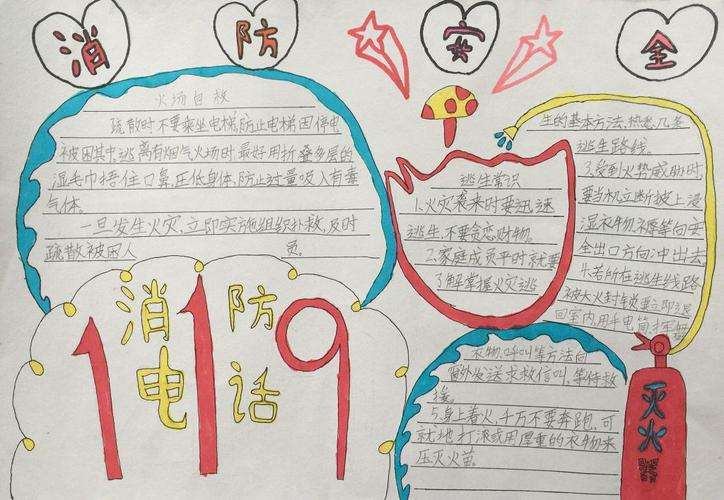 消防安全
火场自救
疏散时不要乘坐电梯,防止电梯因停电
被困其中,逃离有烟气火场时,最好用折叠多层的
湿毛巾捂住口鼻,压低身体,防止过量吸入有毒
气体.
一旦发生火灾,立即实施组织扑救,及时
疏散被困人员.
消防
电话
119
逃生常识
1.火灾袭来时要迅速
逃生,不要贪恋财物.
2.家庭成员平时就要
了解掌握火灾逃
生的基本方法,熟悉几条
逃生路线.
3.受到火势威胁时
要当机立断披上浸
湿衣物,褥等向安
全出口方向冲出去
4.若所在逃生线路
被大火封锁,要立即退
回室内,用手电筒,挥舞
衣物,呼叫等方法向
窗外发送求救信叫,等待救
援.
5.身上着火,千万不要奔跑,可
就地打滚或用厚重的衣物来
压灭火苗.
灭火